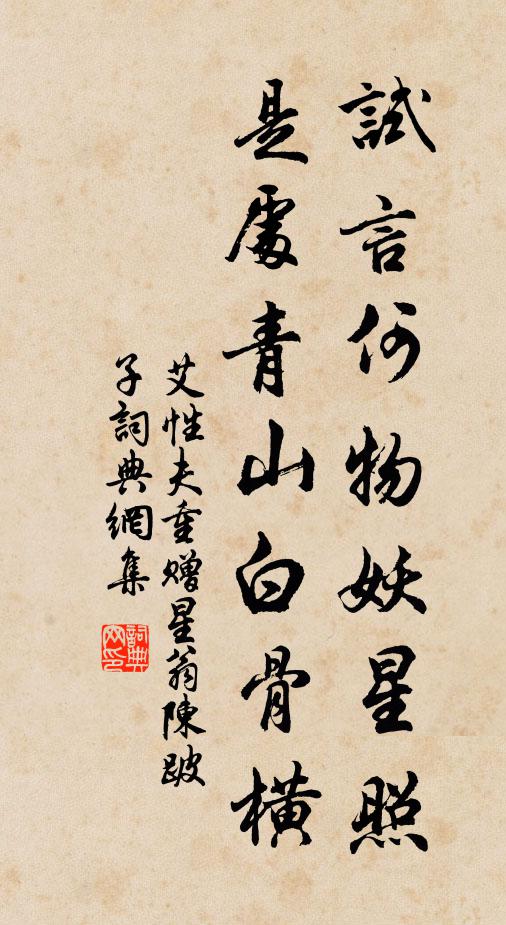 試言何物妖星照
是處青山白骨橫
艾性夫重贈星翁陳跛
子詞典網集
詞典網印